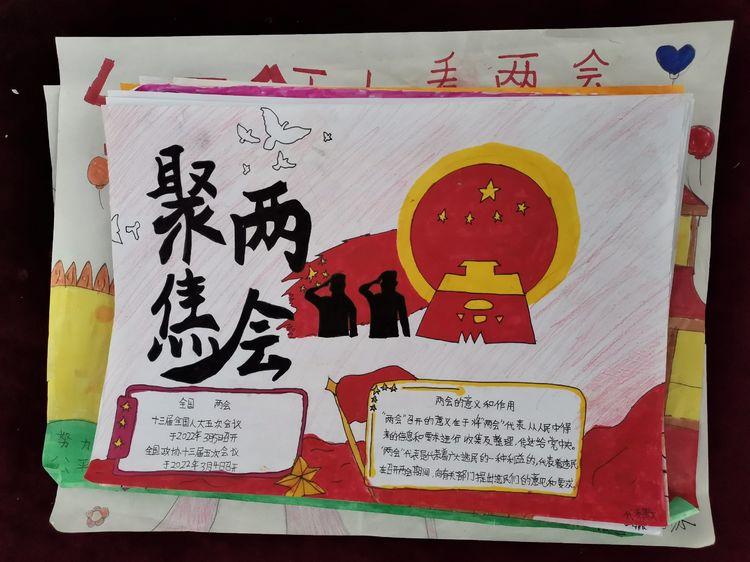 两会
聚两
焦会
全国 两会
十三届全国人大五次会议
于2022年3月5日召开
全国政协十三届五次会议
于2022年3月4日召开
两会的意义和作用
"两会"召开的意义在于将"两会"代表从人民中得
来的信息和要求进行收集及整理,传达给党中央。
"两会"代表是代表着广大选民的一种利益的,代表着选民
在召开两会期间,向有关部门提出选民们的意见和要求
努力